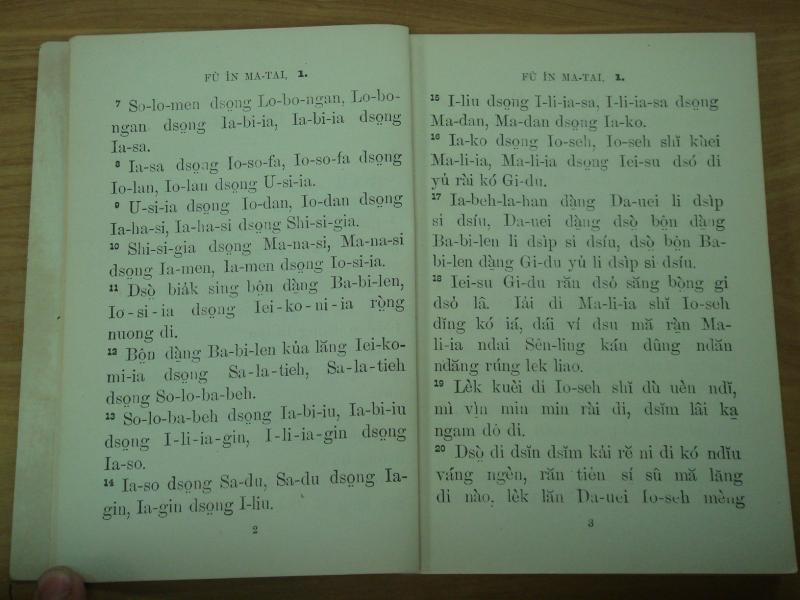 FÛ ÎN MA-TAI, 1.
7 So-lo-men dso̤ng Lo-bo-ngan, Lo-bo-
ngan dso̤ng Ia-bi-ia, Ia-bi-ia dso̤ng
Ia-sa.
8 Ia-sa dso̤ng Io-so-fa, Io-so-fa dso̤ng
Io-lan, Io-lan dso̤ng U-si-ia.
9 U-si-ia dso̤ng Io-dan, Io-dan dso̤ng
Ia-ha-si, Ia-ha-si dso̤ng Shi-si-gia.
10 Shi-si-gia dso̤ng Ma-na-si, Ma-na-si
dso̤ng Ia-men, Ia-men dso̤ng Io-si-ia.
11 Dsò̤ biák sing bô̤n dàng Ba-bi-len,
Io-si-ia dso̤ng Iei-ko-ni-ia rò̤ng
nuong di.
12 Bô̤n dàng Ba-bi-len kúa lăng Iei-ko-
mi-ia dso̤ng Sa-la-tieh, Sa-la-tieh
dso̤ng So-lo-ba-beh.
13 So-lo-ba-beh dso̤ng Ia-bi-iu, Ia-bi-iu
dso̤ng I-li-ia-gin, I-li-ia-gin dso̤ng
Ia-so.
14 Ia-so dso̤ng Sa-du, Sa-du dso̤ng Ia-
gin, Ia-gin dso̤ng I-liu.
2
FÛ ÎN MA-TAI, 1.
15 I-liu dso̤ng I-li-ia-sa, I-li-ia-sa dso̤ng
Ma-dan, Ma-dan dso̤ng Ia-ko.
16 Ia-ko dso̤ng Io-seh, Io-seh shĭ kùei
Ma-li-ia, Ma-li-ia dso̤ng Iei-su dsó di
yủ rài kó Gi-du.
17 Ia-beh-la-han dàng Da-uei li dsìp
si dsíu, Da-uei dàng dsò̤ bô̤n dàng
Ba-bi-len li dsìp si dsíu, dsò̤ bô̤n Ba-
bi-len dàng Gi-du yủ li dsìp si dsíu.
18 Iei-su Gi-du răn dsỏ săng bò̤ng gi
dsỏ lâ. Iải di Ma-li-ia shĭ Io-seh
dĭng kó iá, dái ví dsu mă rạ̀n Ma-
li-ia ndai Sên-ling kán dûng ndăn
ndăng rúng lek liao.
19 Lèk kuèi di Io-seh shĭ dù uèn ndĭ,
mì vìn min min rài di, dsĭm lâi ka̤
ngam dò di.
20 Dsò̤ di dsĭn dsĭm kái rĕ ni di kó ndĭu
váng ngèn, răn tién sí sû mă lăng
di nào, lèk lăn Da-uei Io-seh mèng
3